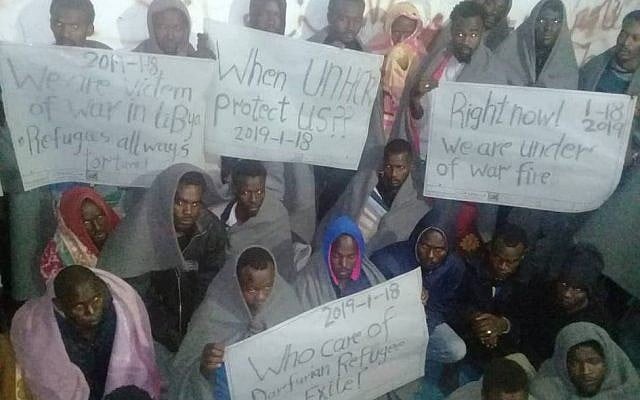 2019-1-18
We are victem
of war in Libya
Refugees allways
tortured!
When UNHCR
protect US??
2019-1-18
Right now! 1-18
2019
we are under
of war fire
2019-1-18
Who care of
Darfurian Refugee
Exile!